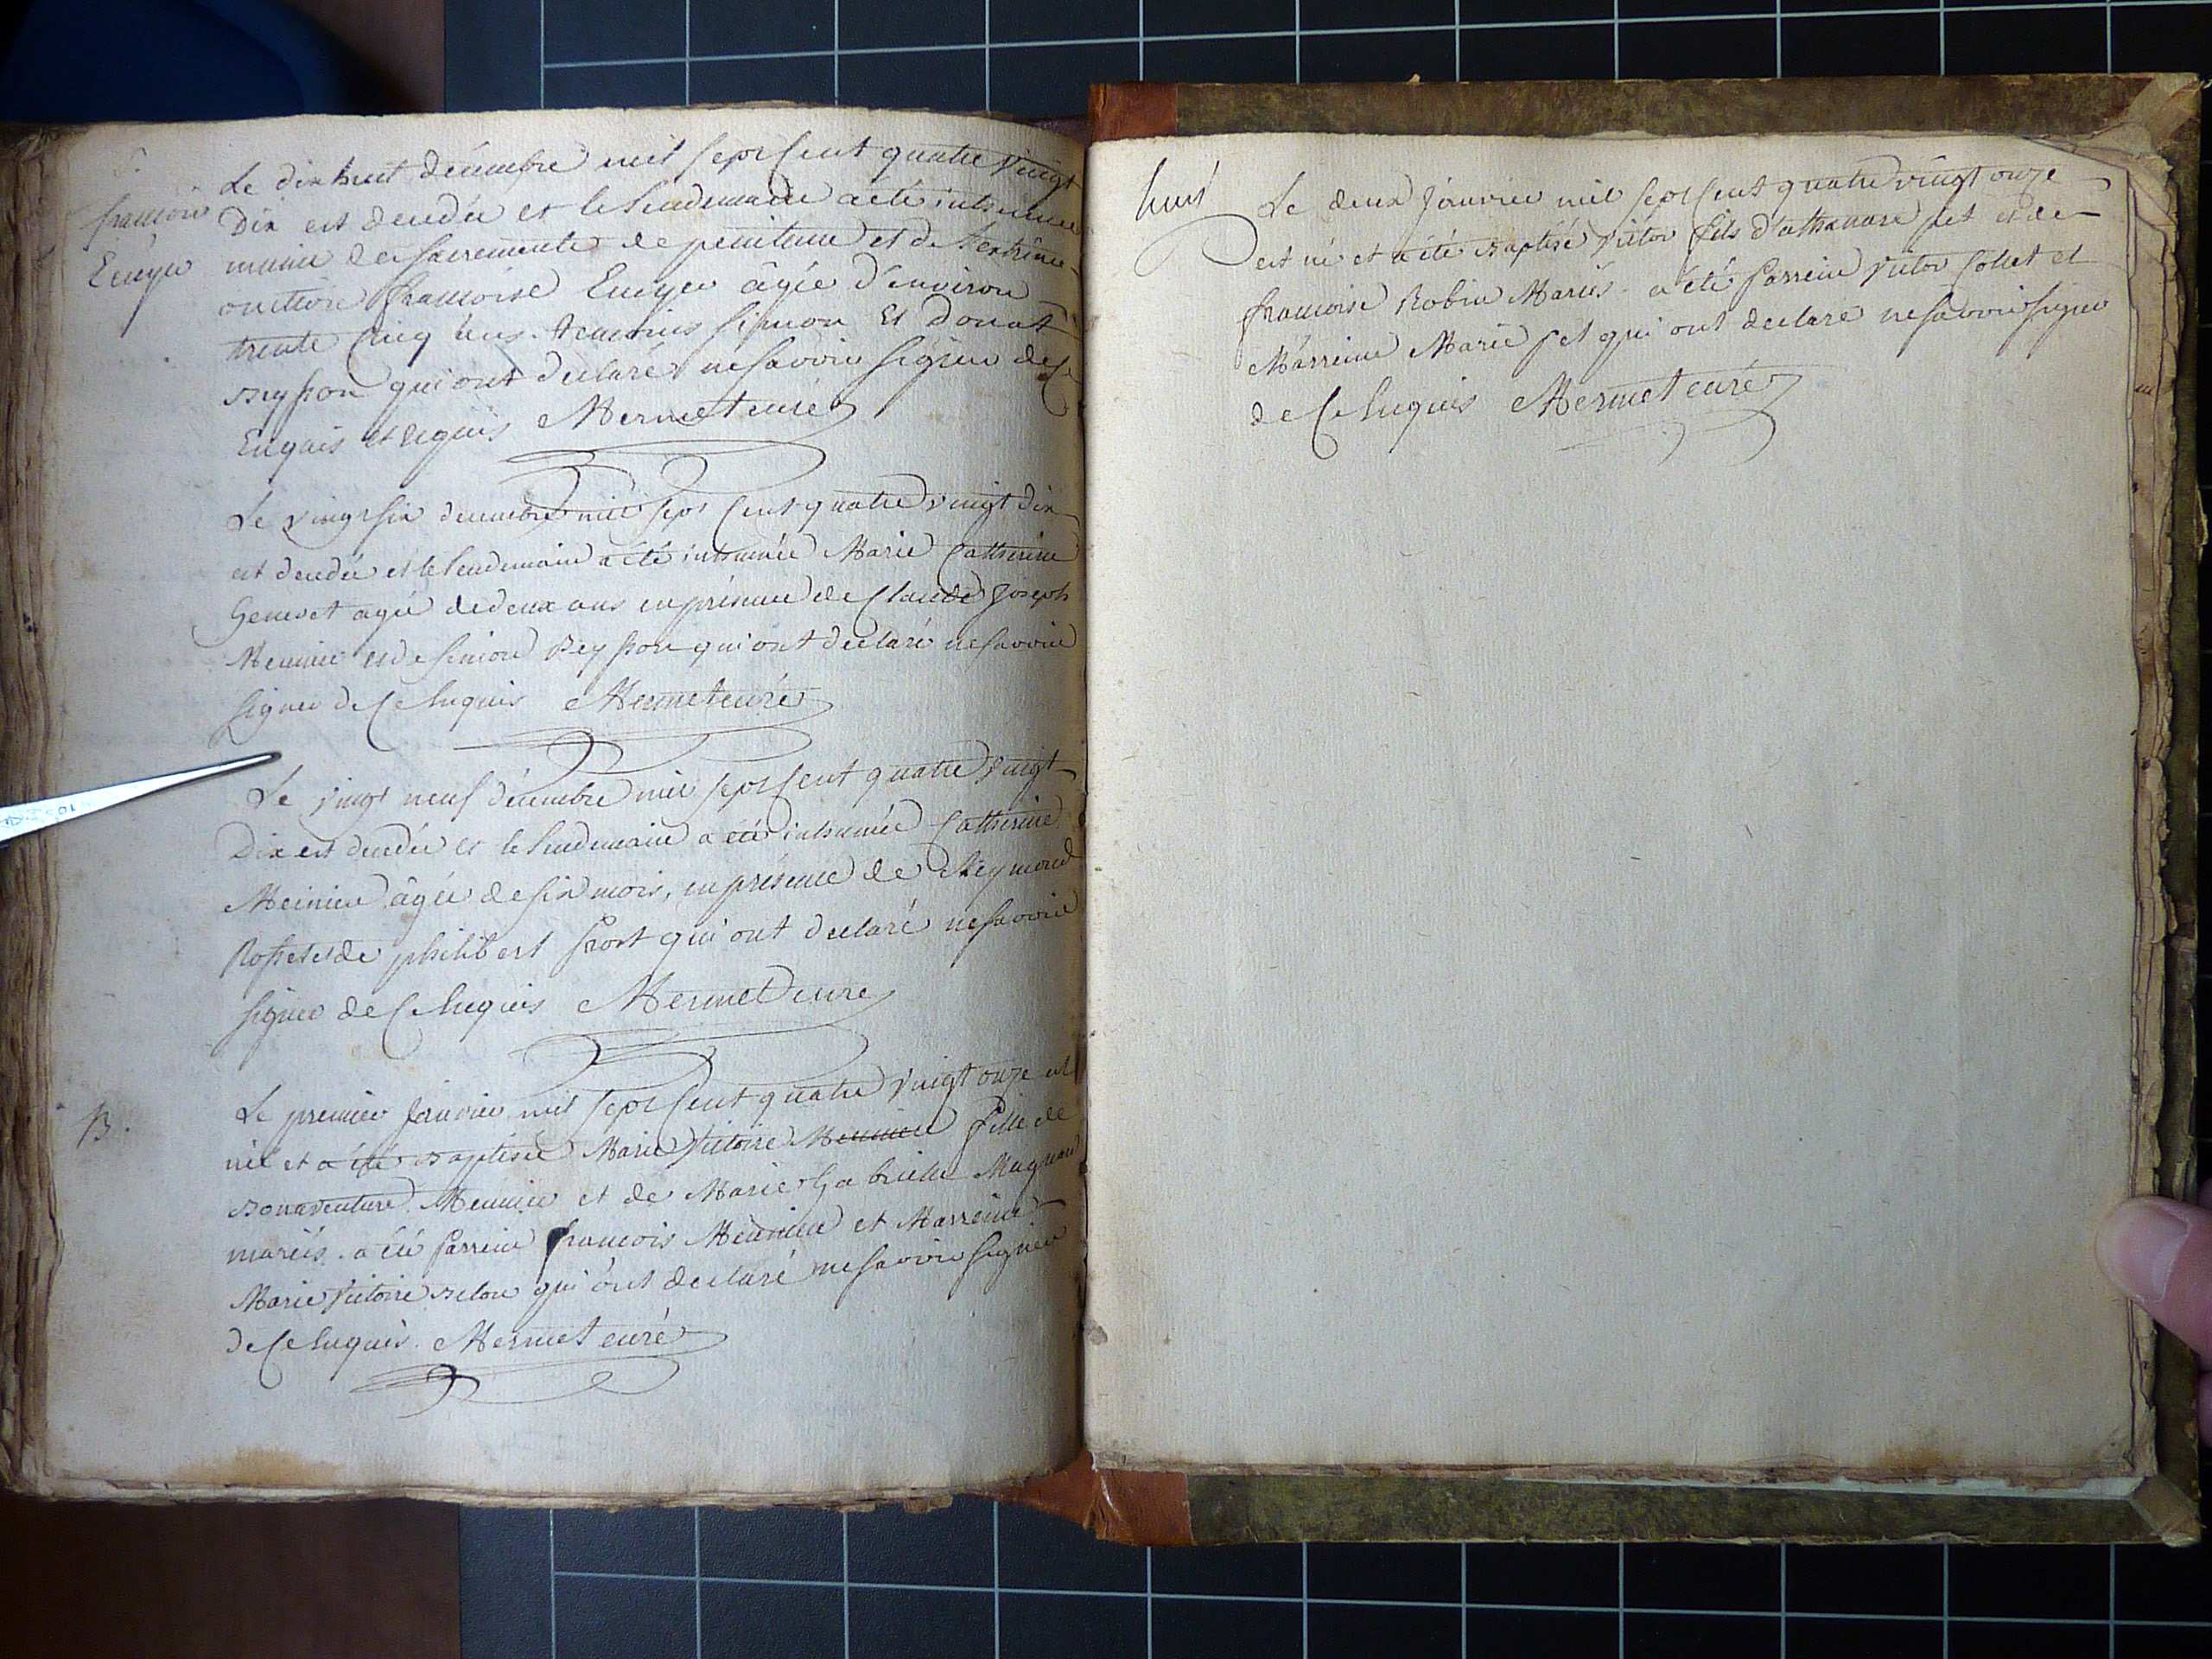 Le dix huit décembre mil sept cent quatre vingt
Dix est decedée et le lendemain a été inhumée
munie des sacrements de penitence et de l'extrême
onction francoise Ecuyer âgée d'environ
trente cinq ans. temoins simon Et Donat
Beysson qui ont declaré ne savoir signer de ce
Enquis et requis Mermet curé
francoise
Ecuyer
Le vingt six decembre mil sept cent quatre vingt dix
est decedée et le lendemain a été inhumée Marie Catherine
âgée de deux ans en présence de Claude Joseph
Meunier et de simon Beysson qui ont declaré ne savoir
signer de ce Enquis Mermet curé
Le vingt neuf décembre mil sept cent quatre vingt
Dix est decedée et le lendemain a été inhumée Catherine
Meinier âgée de six mois, en présence de Reymond
Rosset et de philibert qui ont declaré ne savoir
signer de ce Enquis Mermet curé
B.
Le premier Janvier mil sept cent quatre vingt onze est
née et a été Baptisée Marie Victoire Meunier fille de
Bonaventure Meunier et de Marie Gabrielle
mariés. a été parrein francois Meunier et Marreine
Marie Victoire qui ont declaré ne savoir signer
de ce Enquis. Mermet curé
Le deux Janvier mil sept cent quatre vingt onze
est né et a été Baptisé Victor fils d'athanase et de
francoise Robin Mariés. a été parrein Victor Collet et
Marreine Marie qui ont declaré ne savoir signer
de ce Enquis Mermet curé